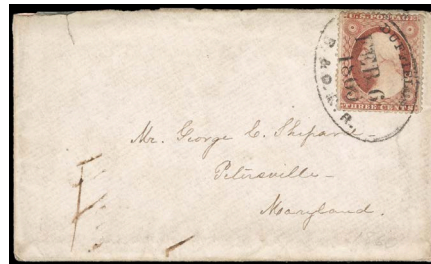 U.S. POSTAGE
FEB 6
THREE CENTS
Mr. George C. Shipar
Petersville —
Maryland.